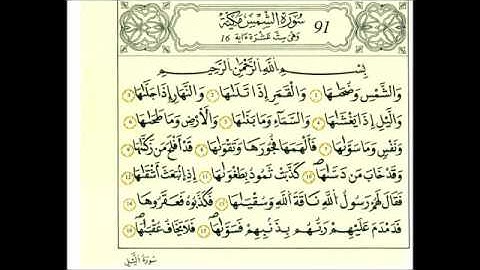 سُورَةُ الشَّمْسِ مَكِّيَّة 91
وَهْيَ سِتَّ عَشْرَةَ ءَايَة 16
بِسْمِ اللَّهِ الرَّحْمَٰنِ الرَّحِيمِ
وَالشَّمْسِ وَضُحَىٰهَا ١ وَالْقَمَرِ إِذَا تَلَىٰهَا ٢ وَالنَّهَارِ إِذَا جَلَّىٰهَا ٣
وَالَّيْلِ إِذَا يَغْشَىٰهَا ٤ وَالسَّمَآءِ وَمَا بَنَىٰهَا ٥ وَالْأَرْضِ وَمَا طَحَىٰهَا ٦
وَنَفْسٍ وَمَا سَوَّىٰهَا ٧ فَأَلْهَمَهَا فُجُورَهَا وَتَقْوَىٰهَا ٨ قَدْ أَفْلَحَ مَن زَكَّىٰهَا ٩
وَقَدْ خَابَ مَن دَسَّىٰهَا ١٠ كَذَّبَتْ ثَمُودُ بِطَغْوَىٰهَا ١١ إِذِ انۢبَعَثَ أَشْقَىٰهَا ١٢
فَقَالَ لَهُمْ رَسُولُ اللَّهِ نَاقَةَ اللَّهِ وَسُقْيَىٰهَا ١٣ فَكَذَّبُوهُ فَعَقَرُوهَا ١٤
فَدَمْدَمَ عَلَيْهِمْ رَبُّهُم بِذَنۢبِهِمْ فَسَوَّىٰهَا ١٥ فَلَا يَخَافُ عُقْبَىٰهَا ١٦
سُورَةُ الَّيْلِ